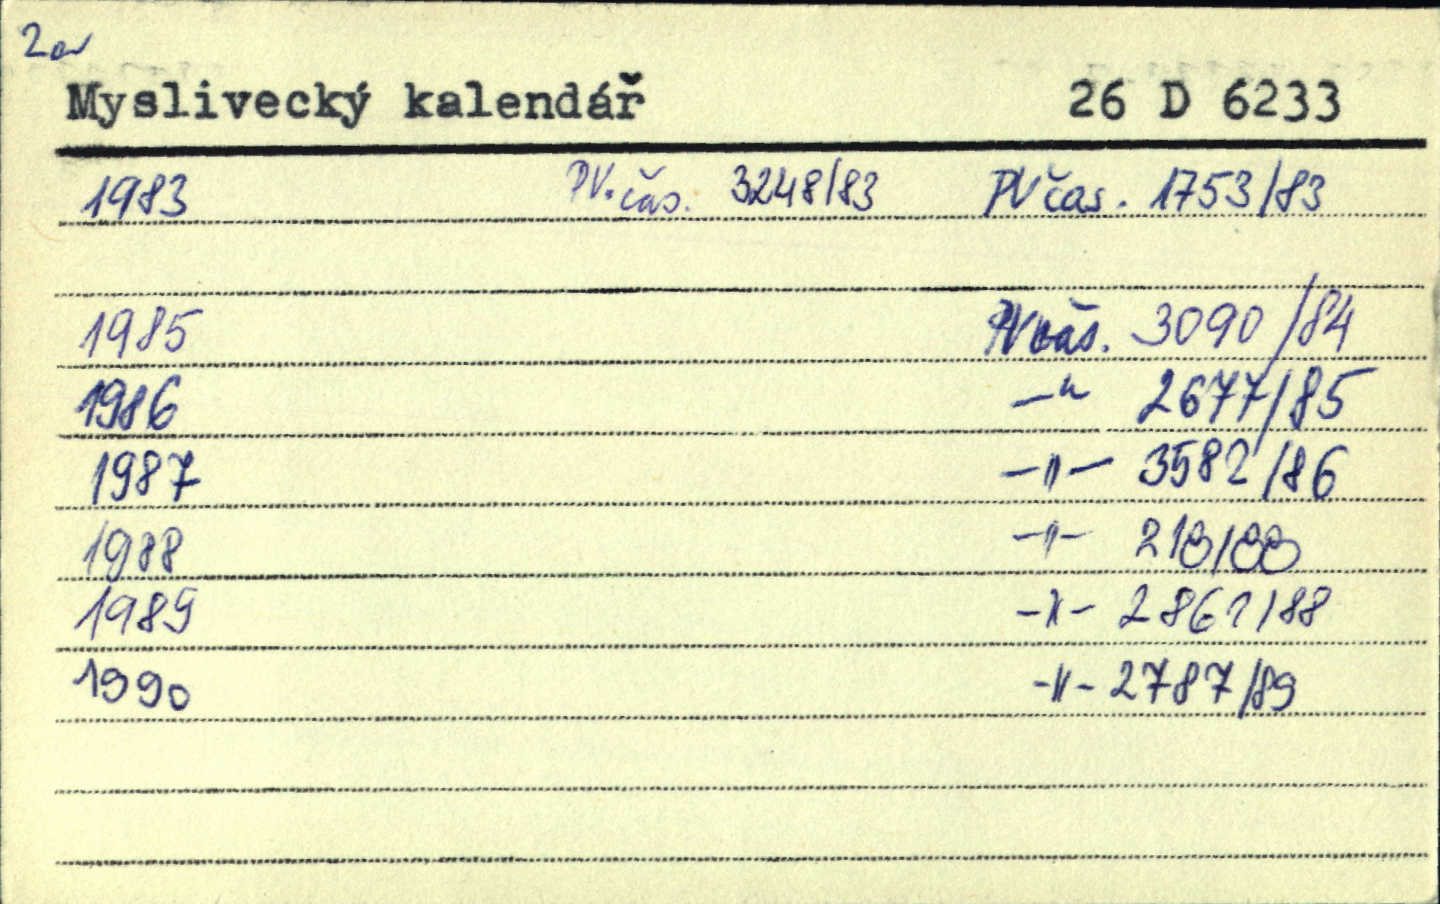 Myslivecký kalendář 26 D 6233
1983 PV.čás. 3248/83 PV čas. 1753/83
1985 PV čás. 3090/84
1986 —"— 2677/85
1987 —"— 3582/86
1988 —"— 218/88
1989 —"— 2861/88
1990 —"— 2787/89